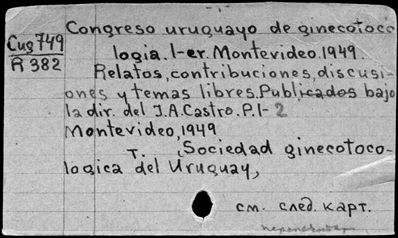 Congreso uruguayo de ginecotoco
Cug 749
logia. I-er. Montevideo. 1949.
R 382
Relatos, contribuciones, discusi-
ones y temas libres. Publicados bajo
la dir. del J.A. Castro. P. I- 2
Montevideo, 1949
T. , Sociedad ginecotoco-
logica del Uruguay,
см. след. карт.